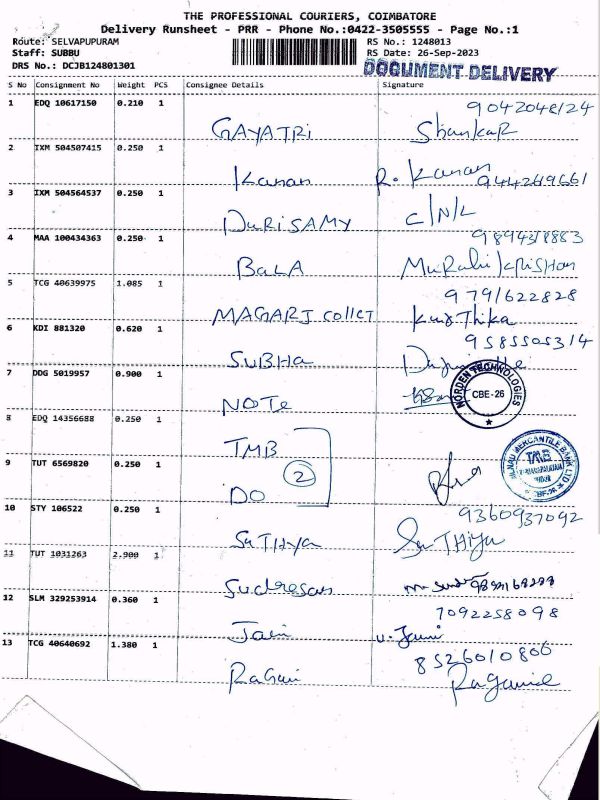 THE PROFESSIONAL COURIERS, COIMBATORE
Delivery Runsheet - PRR - Phone No.:0422-3505555 - Page No.:1
Route: SELVAPUPURAM RS No.: 1248013
Staff: SUBBU RS Date: 26-Sep-2023
DRS No.: DCJB124801301 DOCUMENT DELIVERY
S No Consignment No Weight PCS Consignee Details Signature
1 EDQ 10617150 0.210 1 9042048124
GAYATRI Shankar
2 IXM 504507415 0.250 1
Kanan R. Kanan 944269661
3 IXM 504564537 0.250 1
DURISAMY C/N/L
4 MAA 100434363 0.250 1
BALA
5 TCG 40639975 1.085 1 979/622828
MAGARI collet
6 KDI 881320 0.620 1 9585505314
SUBHA
7 DDG 5019957 0.900 1 NORDEN TECHNOLOGIES CBE-26
NOTE
8 EDQ 14356688 0.250 1
TMB
9 TUT 6569820 0.250 1 2 TMB
DO
10 STY 106522 0.250 1 9360937092
SaTHya SuTHiya
11 TUT 1031263 2.900 1
Sudresan
12 SLM 329253914 0.360 1 7092258098
Jain
13 TCG 40640692 1.380 1 8526010806